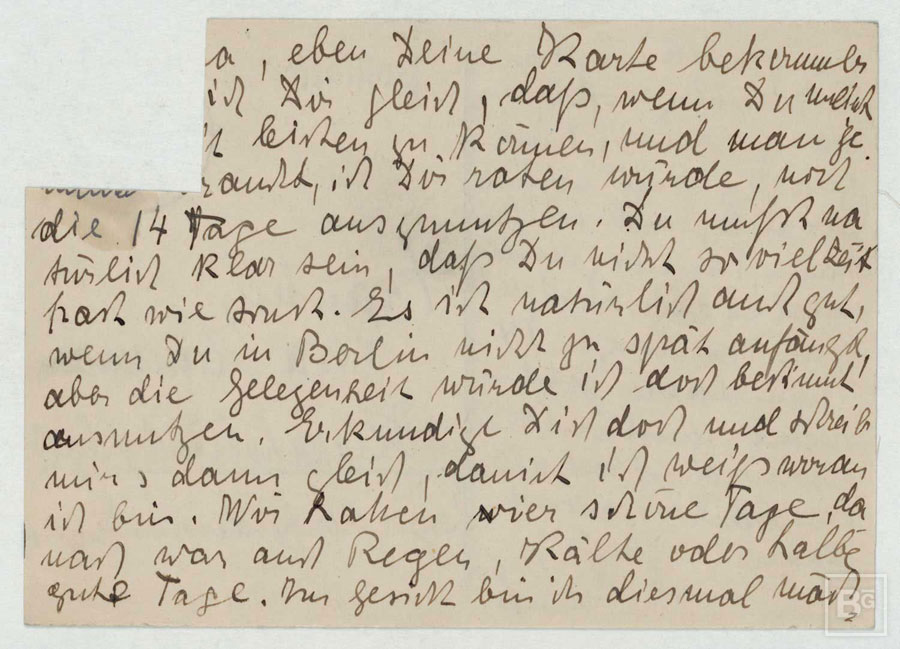 a, eben Deine Karte bekommen
ich Dir gleich, daß, wenn Du
leisten zu können, und man ge
raucht, ich Dir raten würde, noch
die 14 Tage auszunutzen. Du mußst na
türlich klar sein, daß Du nicht so viel Zeit
hast wie sonst. Es ist natürlich auch gut,
wenn Du in Berlin nicht zu spät anfängst,
aber die Gelegenheit würde ich doch bestimmt
ausnutzen. Erkundige Dich doch und schreib
mir's dann gleich, damit ich weiß woran
ich bin. Wir hatten vier schöne Tage, da
nach war auch Regen, Kälte oder halbe
gute Tage. Im Gesicht bin ich diesmal
BG